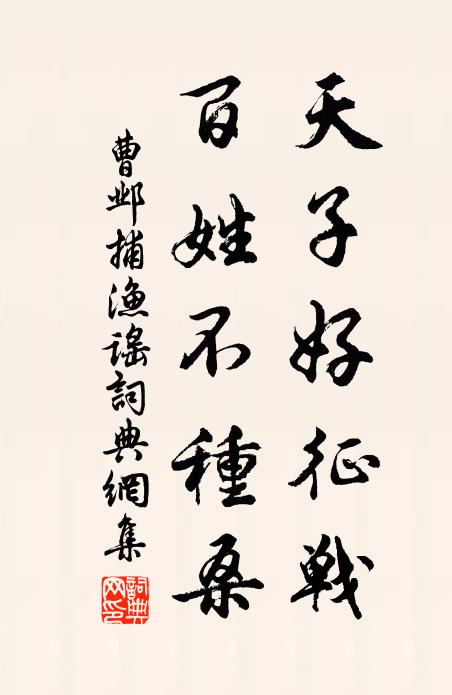 天子好征戰
百姓不種桑
曹邺捕漁謠詞典網集
詞典网印